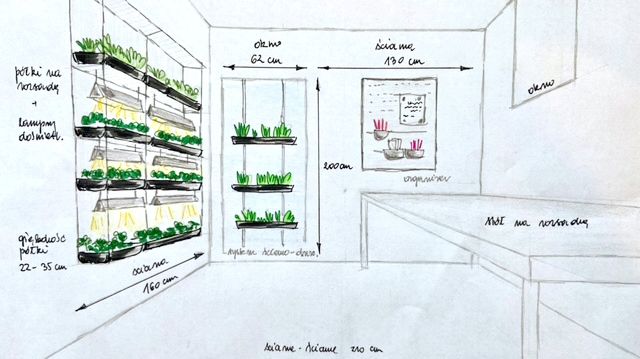 okno
62 cm
ściana
130 cm
okno
półki na
rozsadę
+
lampy
doświetl.
200 cm
organizer
stół na rozsadę
głębokość
półki
22-35 cm
ściana
160 cm
system
ściana - ściana 210 cm